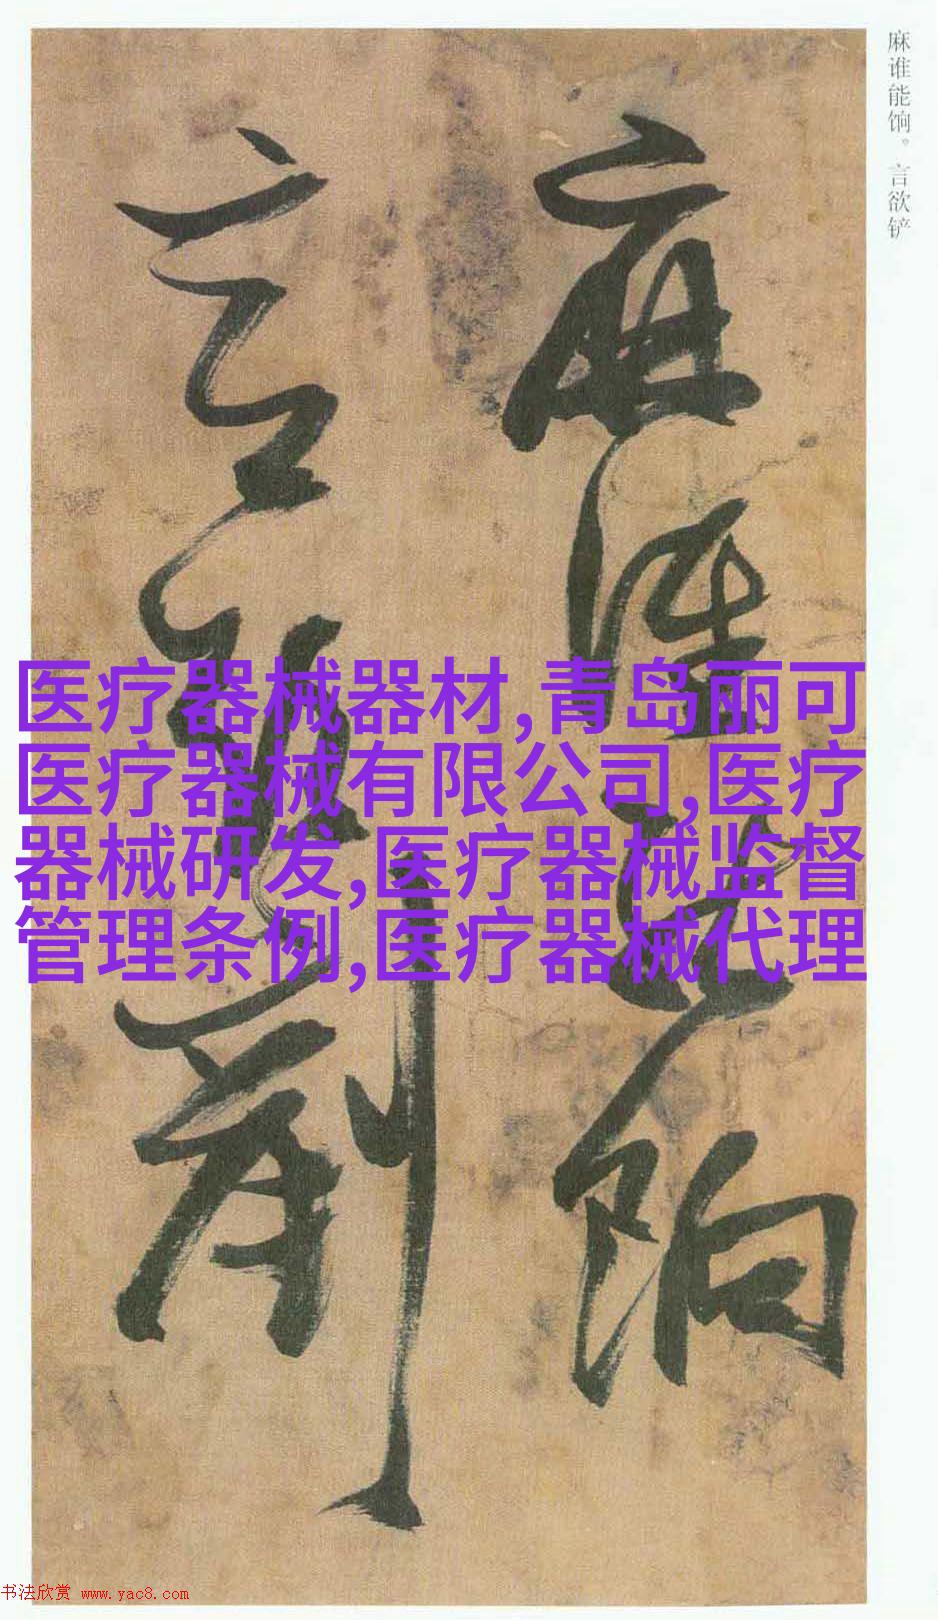 麻谁能饷。言欲铲
麻誰能餉
言欲剷
医疗器械器材,青岛丽可
医疗器械有限公司,医疗
器械研发,医疗器械监督
管理条例,医疗器械代理
书法欣赏 www.yac8.com